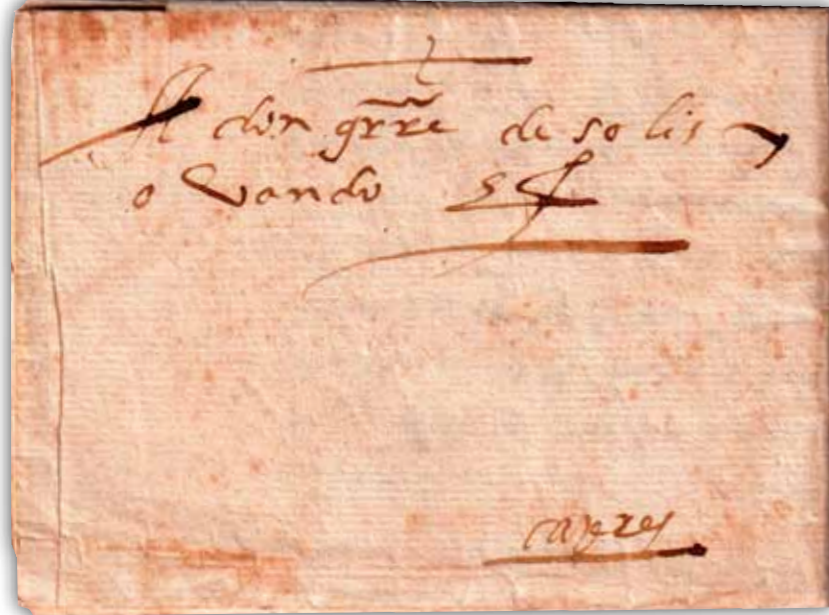 A don grre de solis
o Vando
caçeres